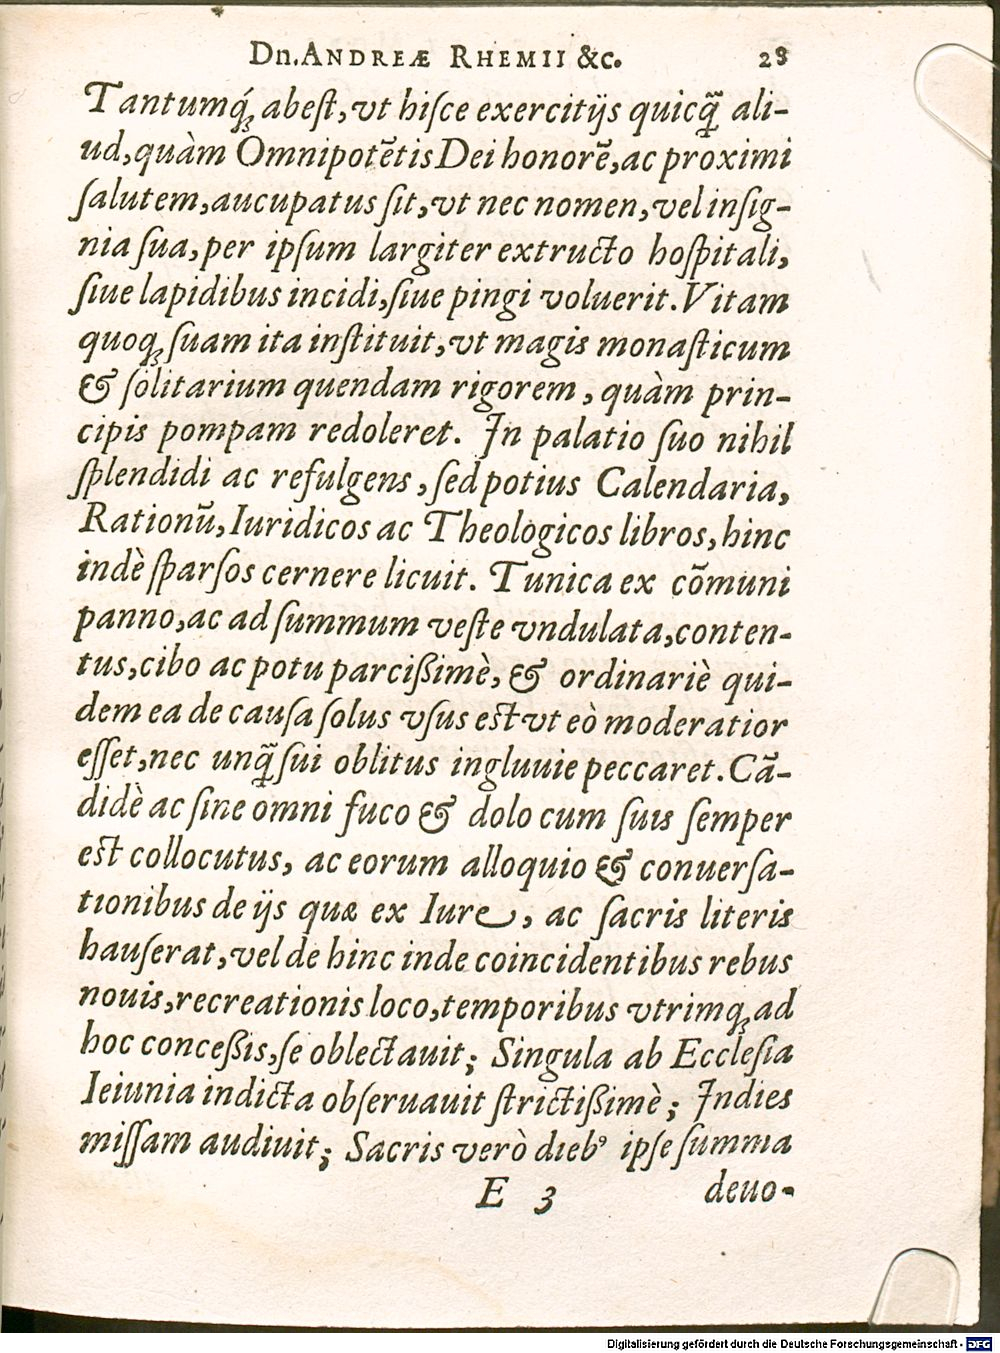 Dn. ANDREÆ RHEMII &c. 28
Tantumq́ꝫ abeſt, vt hiſce exercitijs quicꝗ̃ ali-
ud, quàm Omnipotẽtis Dei honorẽ, ac proximi
ſalutem, aucupatus ſit, vt nec nomen, vel inſig-
nia ſua, per ipſum largiter extructo hoſpitali,
ſiue lapidibus incidi, ſiue pingi voluerit. Vitam
quoqꝫ ſuam ita inſtituit, vt magis monaſticum
& ſolitarium quendam rigorem, quàm prin-
cipis pompam redoleret. In palatio ſuo nihil
ſplendidi ac refulgens, ſed potius Calendaria,
Rationũ, Iuridicos ac Theologicos libros, hinc
indè ſparſos cernere licuit. Tunica ex cõmuni
panno, ac ad ſummum veſte vndulata, conten-
tus, cibo ac potu parcißimè, & ordinariè qui-
dem ea de cauſa ſolus vſus eſt vt eò moderatior
eſſet, nec unꝗ̃ ſui oblitus ingluuie peccaret. Cã-
didè ac ſine omni fuco & dolo cum ſuis ſemper
eſt collocutus, ac eorum alloquio & conuerſa-
tionibus de ijs quæ ex Iure, ac ſacris literis
hauſerat, vel de hinc inde coincidentibus rebus
nouis, recreationis loco, temporibus vtrimqꝫ ad
hoc conceßis, ſe oblectauit; Singula ab Eccleſia
Ieiunia indicta obſeruauit ſtrictißimè; Indies
miſſam audiuit; Sacris verò dieb⁹ ipſe ſumma
E 3 deuo-
Digitalisierung gefördert durch die Deutsche Forschungsgemeinschaft - DFG